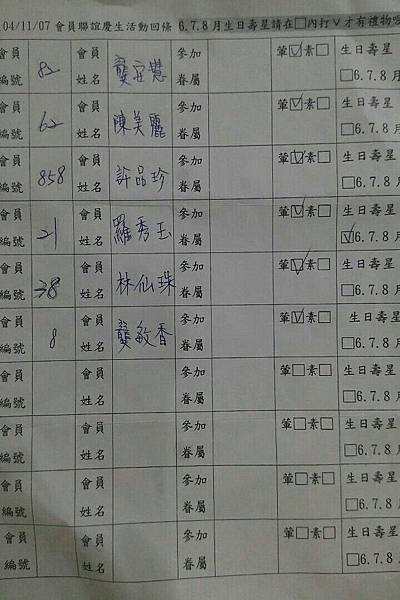 04/11/07 會員聯誼慶生活動回條 6.7.8月生日壽星請在□內打ˇ才有禮物
會員 會員 參加 葷☑素□ 生日壽星
編號 82 姓名 龔宜慧 眷屬 □6.7.8月
會員 會員 參加 葷☑素□ 生日壽星
編號 62 姓名 陳美麗 眷屬 □6.7.8月
會員 會員 參加 葷☑素□ 生日壽星
編號 858 姓名 許品珍 眷屬 □6.7.8月
會員 會員 參加 葷☑素□ 生日壽星
編號 21 姓名 羅秀玉 眷屬 ☑6.7.8月
會員 會員 參加 葷☑素□ 生日壽星
編號 38 姓名 林仙珠 眷屬 □6.7.8月
會員 會員 參加 葷☑素□ 生日壽星
編號 8 姓名 龔敏香 眷屬 □6.7.8月
會員 會員 參加 葷□素□ 生日壽星
編號 姓名 眷屬 □6.7.8月
會員 會員 參加 葷□素□ 生日壽星
編號 姓名 眷屬 □6.7.8月
會員 會員 參加 葷□素□ 生日壽星
編號 姓名 眷屬 □6.7.8月
會員 會員 參加 葷□素□ 生日壽星
編號 姓名 眷屬 □6.7.8